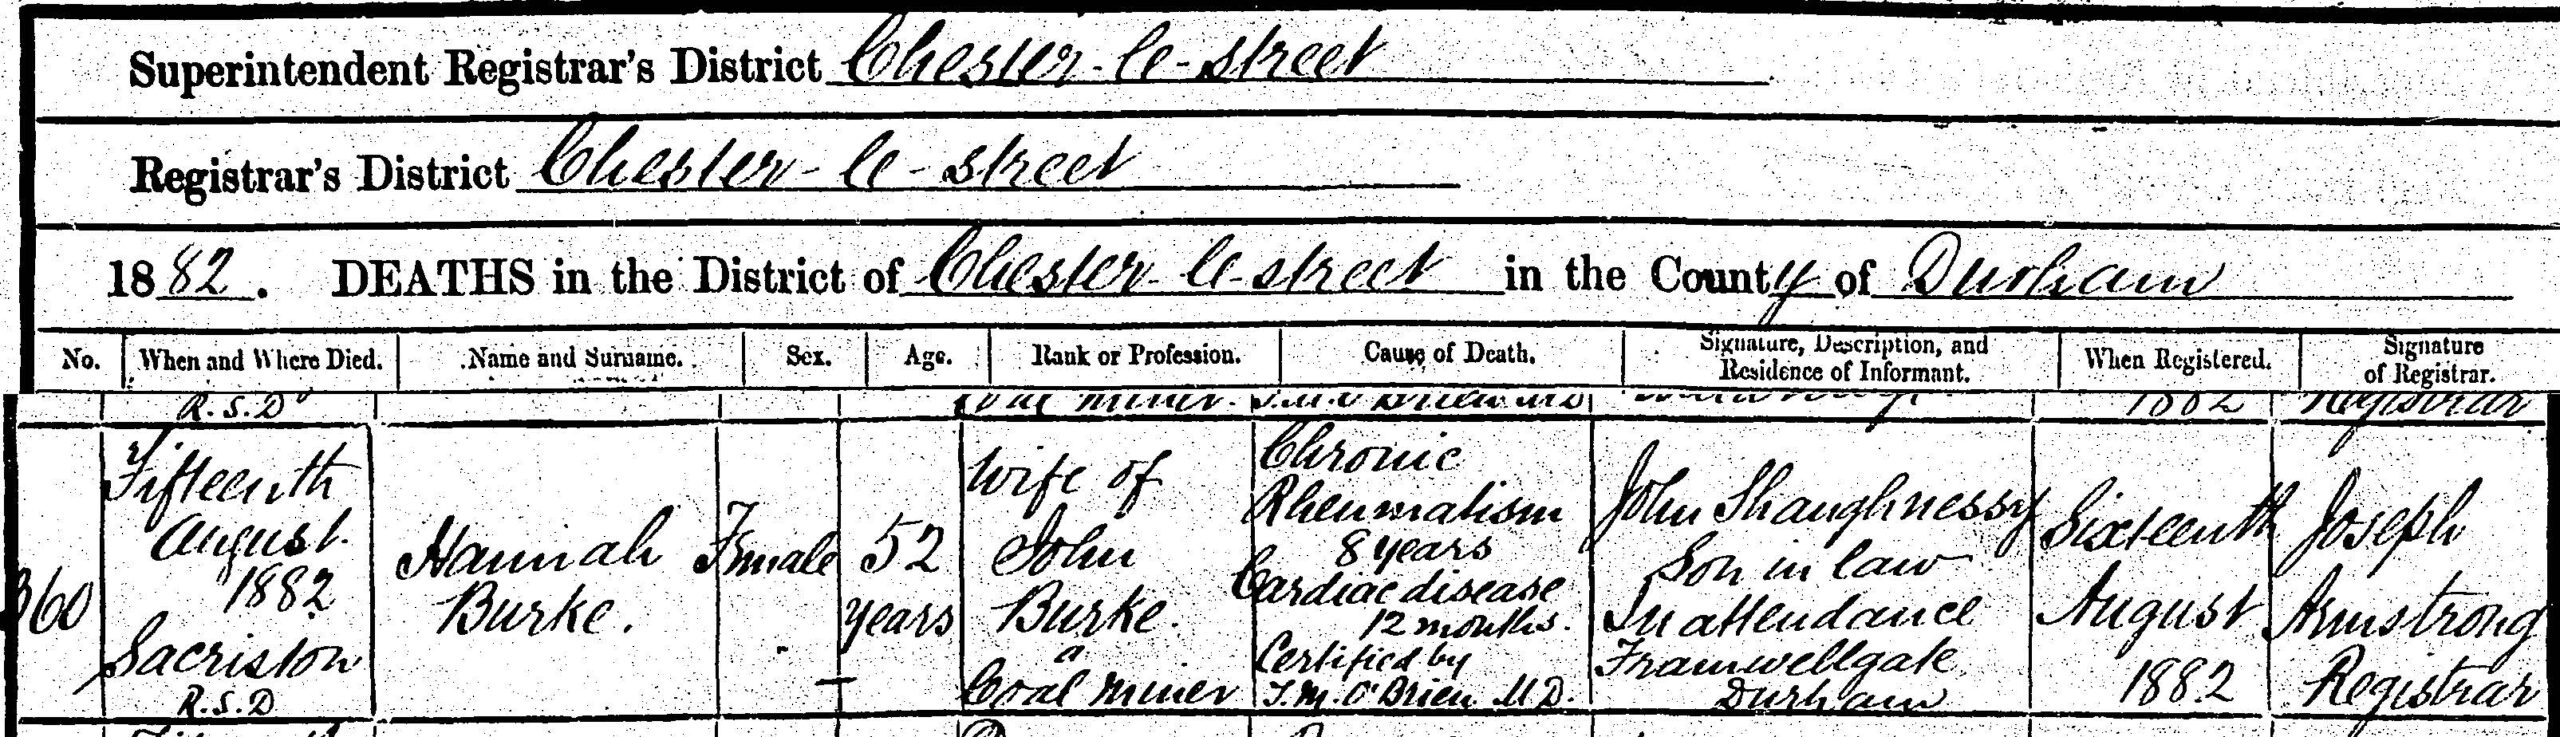 Superintendent Registrar's District Chester-le-Street
Registrar's District Chester-le-Street
1882. DEATHS in the District of Chester-le-Street in the County of Durham
No. When and Where Died. Name and Surname. Sex. Age. Rank or Profession. Cause of Death. Signature, Description, and Residence of Informant. When Registered. Signature of Registrar.
R.S.D Coal miner. 1882 Registrar
360
Fifteenth
August
1882
Sacriston
R.S.D
Hannah
Burke.
Female
52
years
Wife of
John
Burke.
a
Coal Miner
Chronic
Rheumatism
8 years
Cardiac disease
12 months.
Certified by
T.M. O'Brien M.D.
John Shaughnessy
Son in law
In attendance
Framwellgate
Durham
Sixteenth
August
1882
Joseph
Armstrong
Registrar